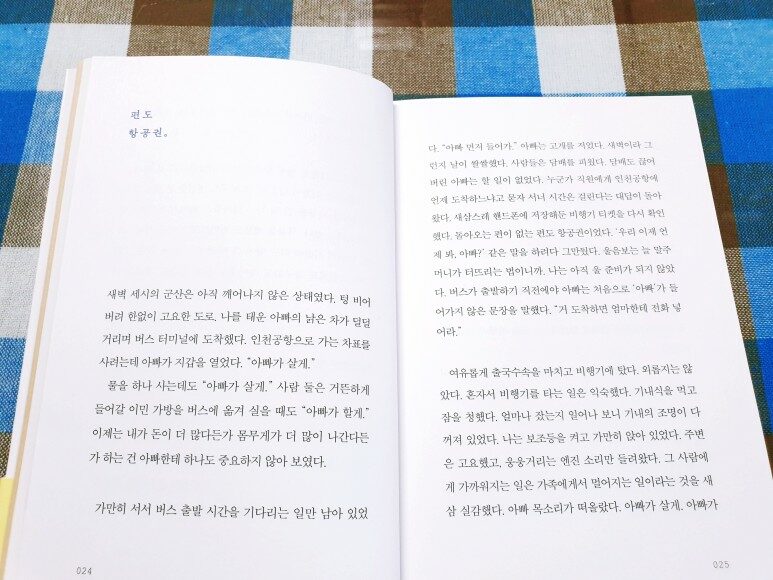 편도
항공권。
새벽 세시의 군산은 아직 깨어나지 않은 상태였다. 텅 비어
버려 한없이 고요한 도로. 나를 태운 아빠의 낡은 차가 덜덜
거리며 버스 터미널에 도착했다. 인천공항으로 가는 차표를
사려는데 아빠가 지갑을 열었다. “아빠가 살게.”
물을 하나 사는데도 “아빠가 살게.” 사람 둘은 거뜬하게
들어갈 이민 가방을 버스에 옮겨 실을 때도 “아빠가 할게.”
이제는 내가 돈이 더 많다든가 몸무게가 더 많이 나간다든
가 하는 건 아빠한테 하나도 중요하지 않아 보였다.
가만히 서서 버스 출발 시간을 기다리는 일만 남아 있었
024
다. “아빠 먼저 들어가.” 아빠는 고개를 저었다. 새벽이라 그
런지 날이 쌀쌀했다. 사람들은 담배를 피웠다. 담배도 끊어
버린 아빠는 할 일이 없었다. 누군가 직원에게 인천공항에
언제 도착하느냐고 묻자 서너 시간은 걸린다는 대답이 돌아
왔다. 새삼스레 핸드폰에 저장해둔 비행기 티켓을 다시 확인
했다. 돌아오는 편이 없는 편도 항공권이었다. ‘우리 이제 언
제 봐, 아빠?’ 같은 말을 하려다 그만뒀다. 울음보는 늘 말주
머니가 터뜨리는 법이니까. 나는 아직 울 준비가 되지 않았
다. 버스가 출발하기 직전에야 아빠는 처음으로 ‘아빠’가 들
어가지 않은 문장을 말했다. “거 도착하면 엄마한테 전화 넣
어라.”
여유롭게 출국수속을 마치고 비행기에 탔다. 외롭지는 않
았다. 혼자서 비행기를 타는 일은 익숙했다. 기내식을 먹고
잠을 청했다. 얼마나 잤는지 일어나 보니 기내의 조명이 다
꺼져 있었다. 나는 보조등을 켜고 가만히 앉아 있었다. 주변
은 고요했고, 웅웅거리는 엔진 소리만 들려왔다. 그 사람에
게 가까워지는 일은 가족에게서 멀어지는 일이라는 것을 새
삼 실감했다. 아빠 목소리가 떠올랐다. 아빠가 살게. 아빠가
025